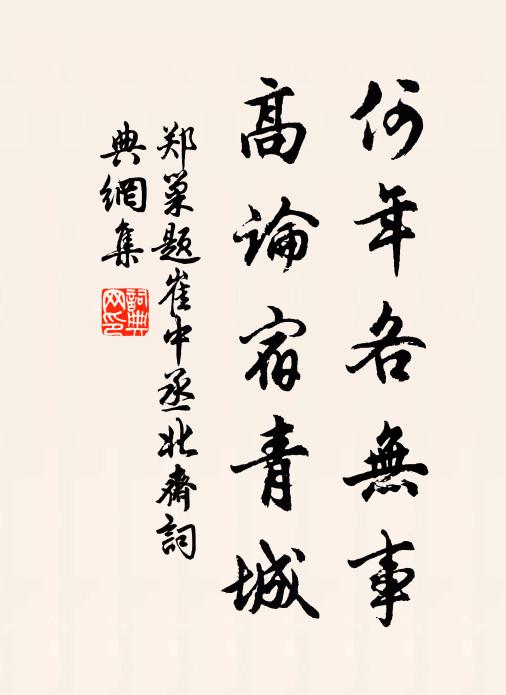 何年各無事
高論宿青城
郑巢题崔中丞北齋詞
典網集
詞典
网印